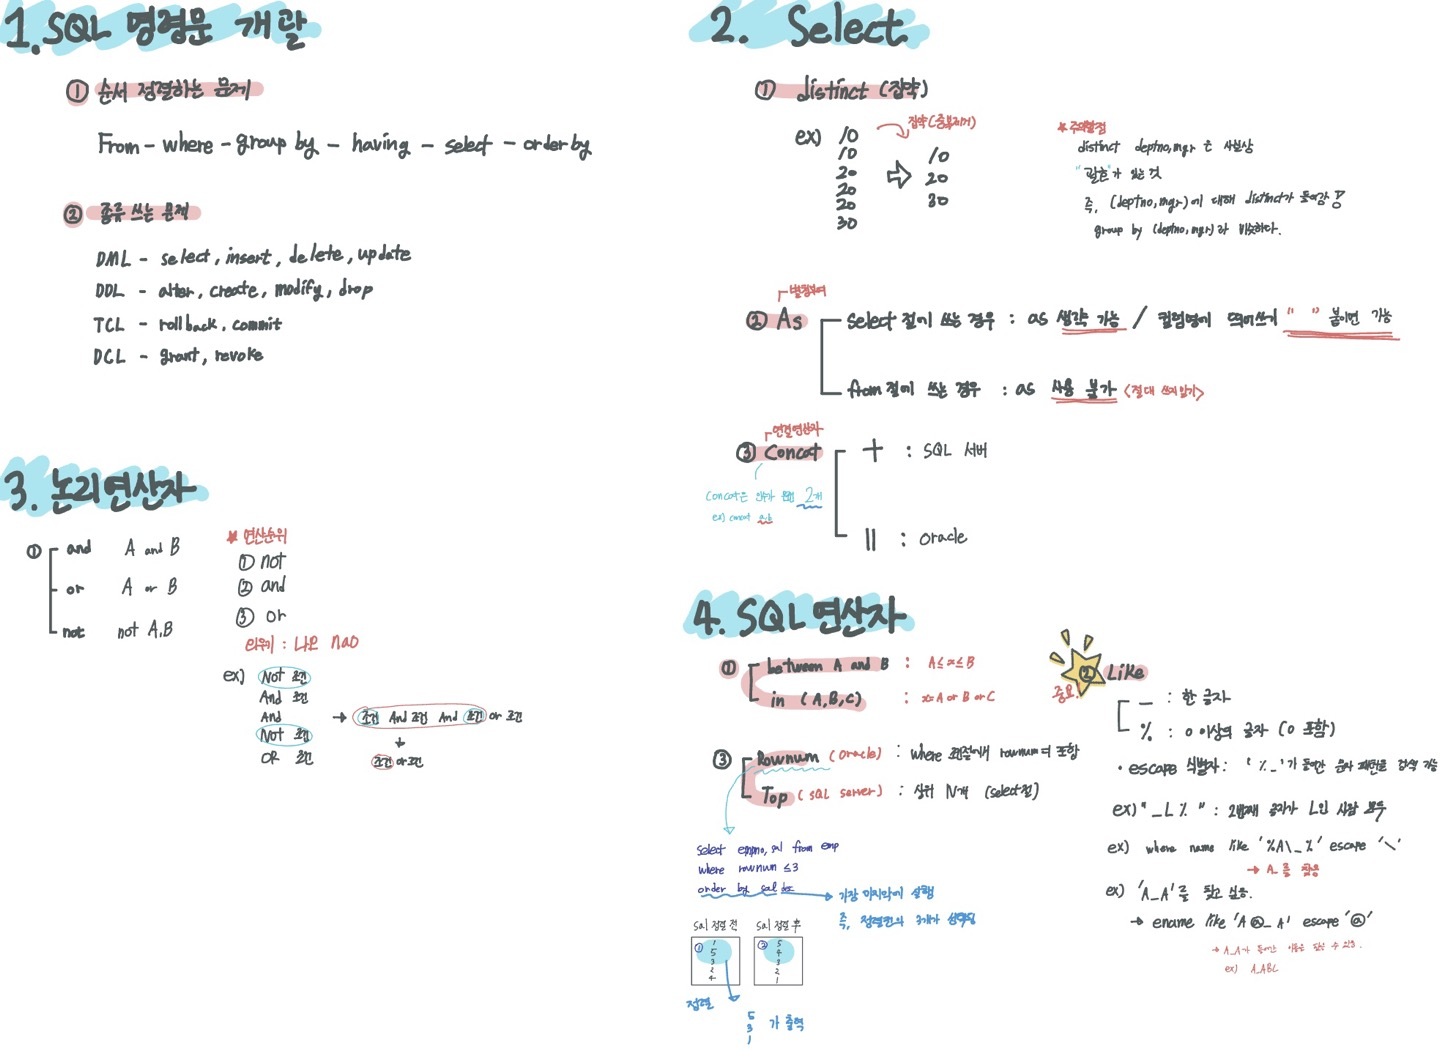 1. SQL 명령문 개괄
① 순서 정렬하는 문제
From - where - group by - having - select - order by
② 종류 쓰는 문제
DML - select, insert, delete, update
DDL - alter, create, modify, drop
TCL - rollback, commit
DCL - grant, revoke
2. Select
① distinct (집약)
ex) 10
10
20
20
20
30
집약(중복제거)
10
20
30
★ 주의할점
distinct deptno, mgr 은 사실상
"괄호"가 있는 것
즉, (deptno, mgr)에 대해 distinct가 들어감!
group by (deptno, mgr)과 비슷하다.
별칭부여
② As
select 절에 쓰는 경우 : as 생략 가능 / 컬럼명에 띄어쓰기 " " 붙이면 가능
from 절에 쓰는 경우 : as 사용 불가 <절대 쓰지않기>
연결연산자
③ Concat
+ : SQL 서버
|| : oracle
Concat은 인자가 2개
ex) concat a,b
3. 논리연산자
①
and A and B
or A or B
not not A,B
★ 연산순위
① not
② and
③ or
외우기 : 나오 nao
ex) Not 조건
And 조건
And
Not 조건
OR 조건
→ 조건 And 조건 And 조건 or 조건
조건 or 조건
4. SQL 연산자
① between A and B : A≤x≤B
in (A,B,C) : x=A or B or C
중요.
② Like
_ : 한 글자
% : 0 이상의 글자 (0 포함)
· escape 식별자 : '%_'가 들어간 문자 패턴을 검색 가능
ex) "_L%" : 2번째 글자가 L인 사람 모두
ex) where name like '%A\_%' escape '\'
→ A_를 찾음
ex) 'A_A'를 찾고 싶음.
→ ename like 'A@_A' escape '@'
→ A_A가 들어간 이름을 찾을 수 있음.
ex) A_ABC
③ Rownum (oracle) : where 조건절에서 rownum
Top (SQL server) : 상위 N개 (select절)
select empno, sal from emp
where rownum ≤3
order by sal desc
→ 가장 마지막에 실행
즉, 정렬전의 3개가
sal 정렬 전
① 1
5
3
2
4
sal 정렬 후
② 5
4
3
2
1
정렬
5
3
1
가 출력